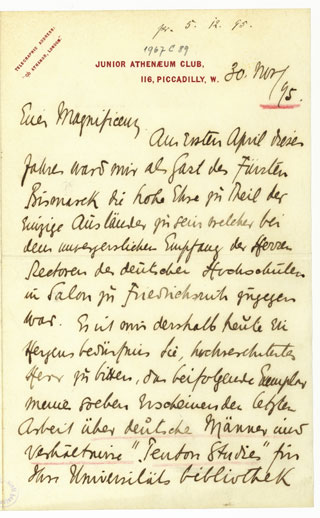 pr. 5. 12. 95.
1967 C 89
TELEGRAPHIC ADDRESS:
JUNIOR ATHENÆUM CLUB,
116, PICCADILLY, W.
30. Nov/95.
Euer Magnificenz
Am ersten April dieses
Jahres ward mir als Gast des Fürsten
Bismarck die hohe Ehre zu Theil der
einzige Ausländer zu sein welcher bei
dem unvergesslichen Empfang der Herren
Rectoren der deutschen Hochschulen
im Salon zu Friedrichsruh zugegen
war. Es ist mir deshalb heute ein
Herzensbedürfniss Sie, hochverehrtester
Herr zu bitten, das beifolgende Exemplar
meiner soeben erscheinenden letzten
Arbeit über deutsche Männer und
Verhältnisse "Teuton Studies" für
Ihre Universitäts bibliothek